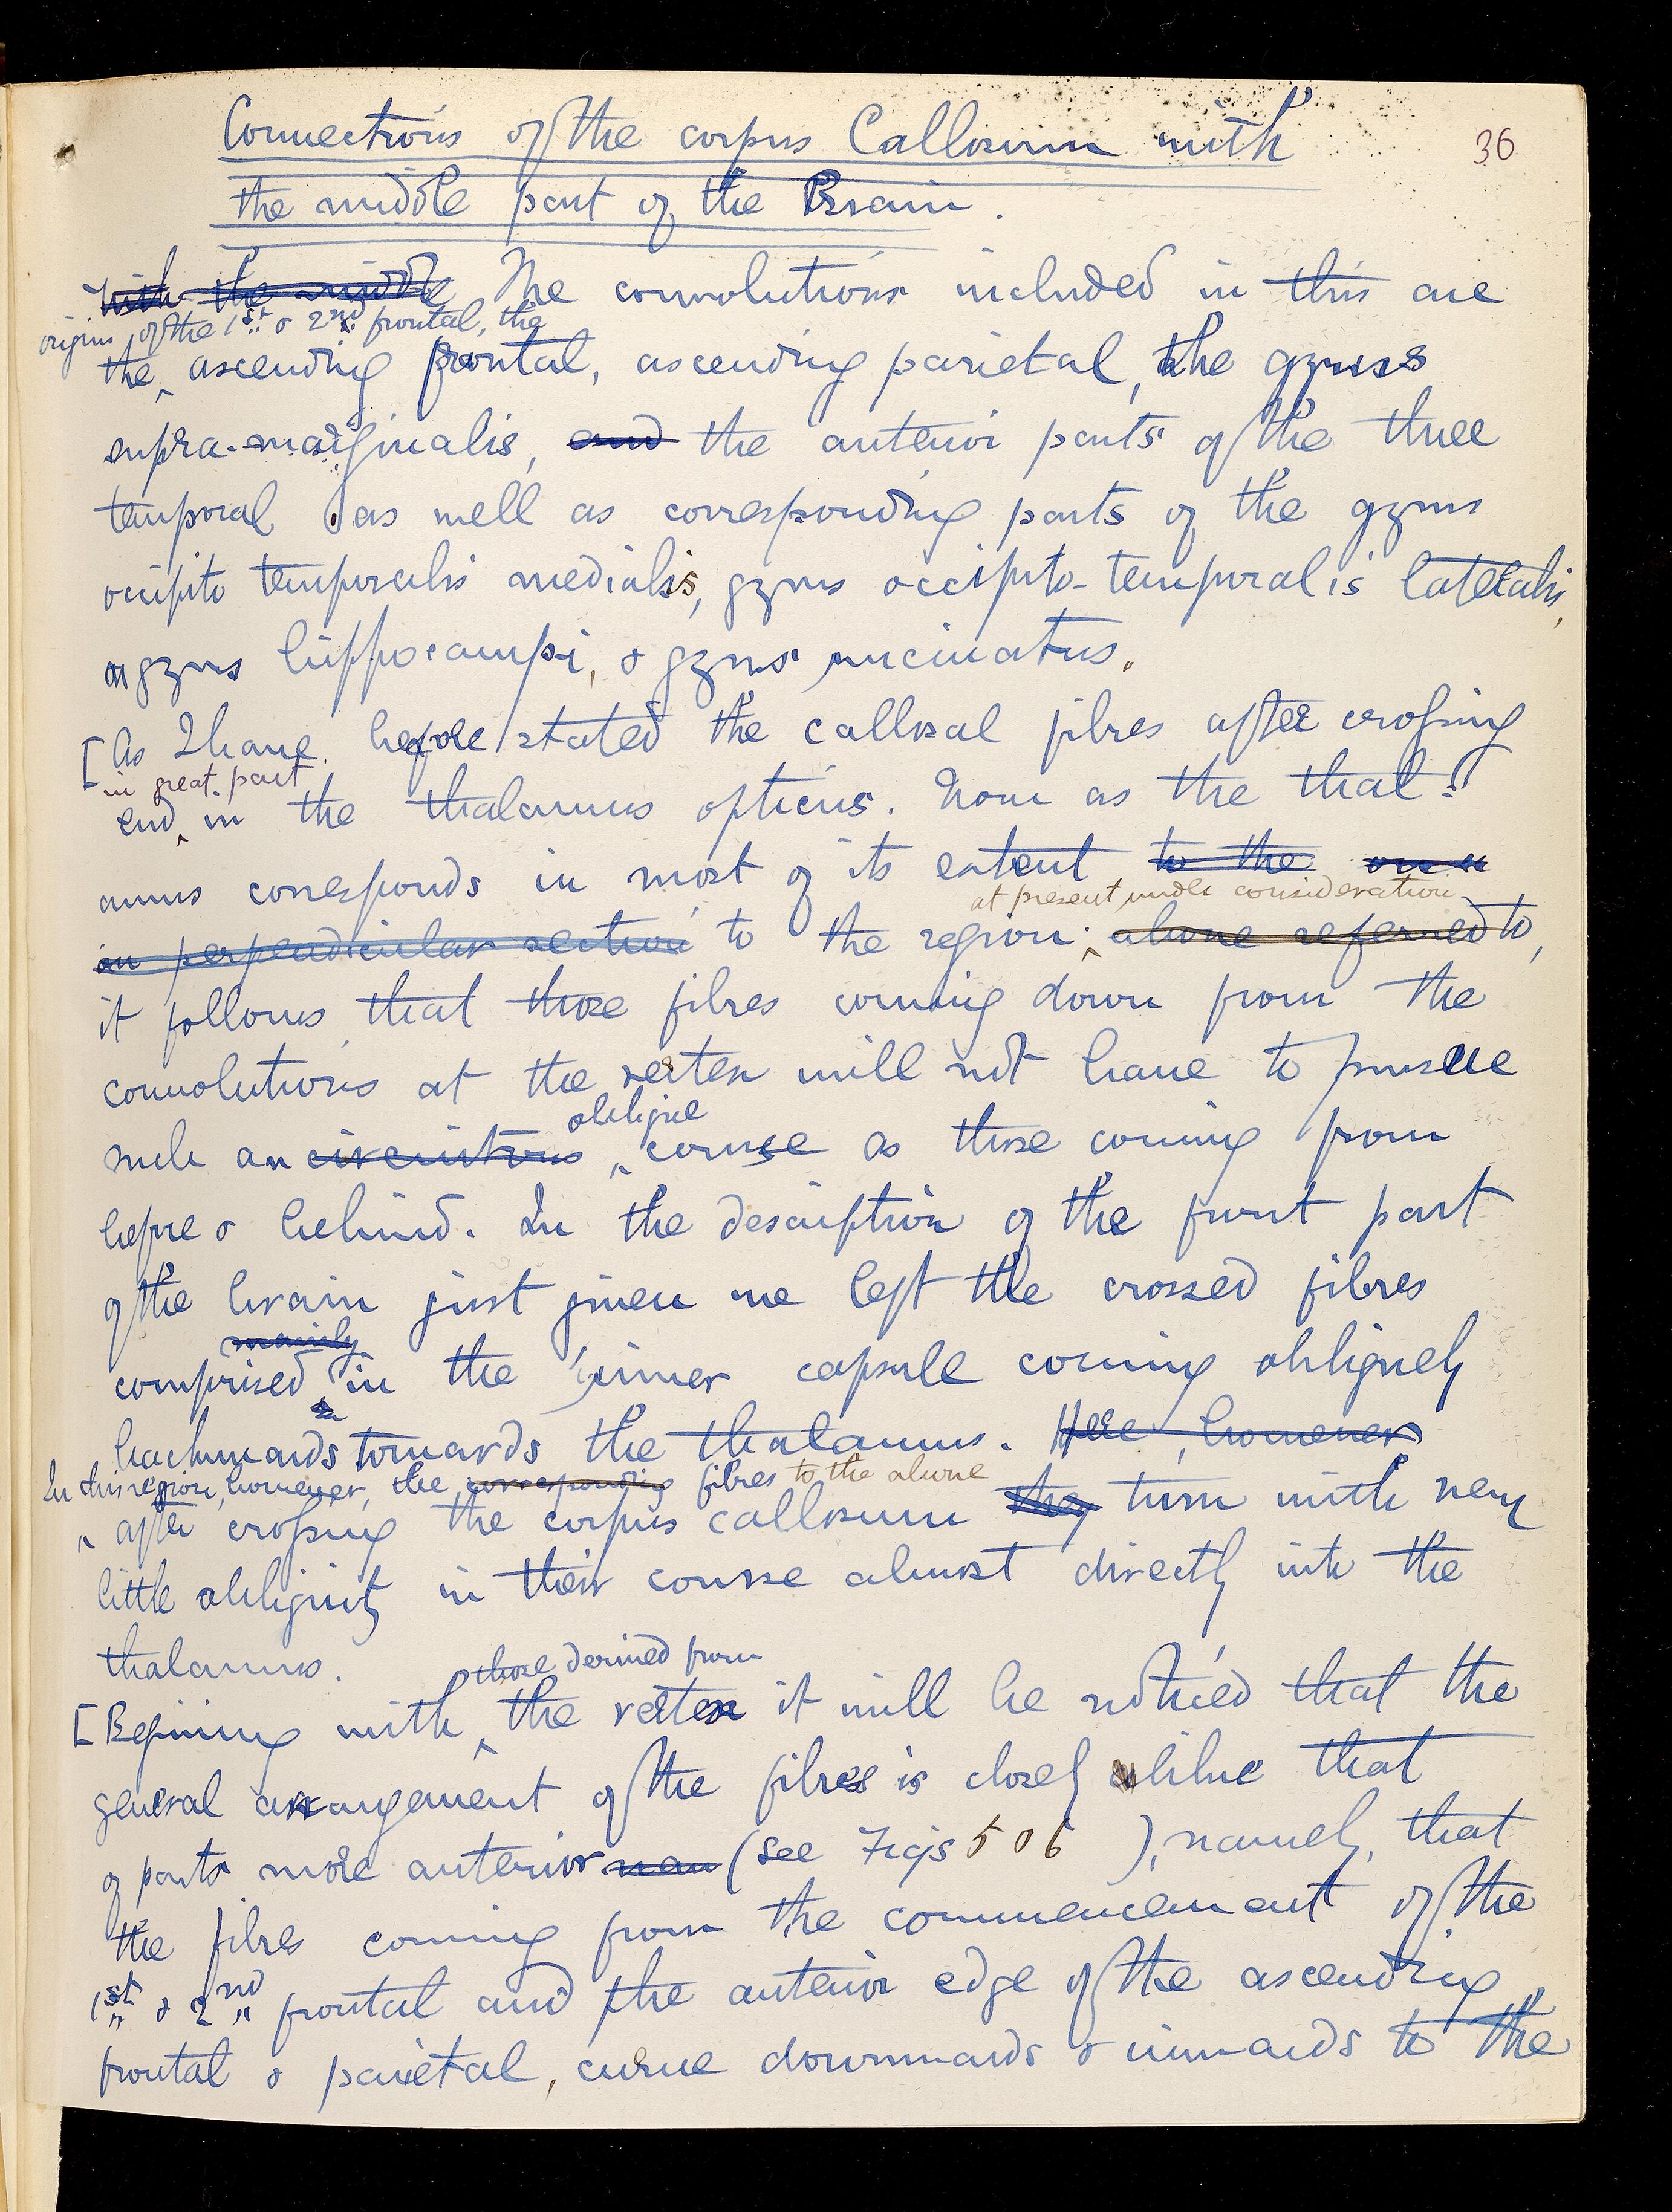 Connections of the corpus Callosum with
36
the middle part of the Brain.
With the middle The convolutions included in this are
origins of the 1st & 2nd frontal, the
the ascending frontal, ascending parietal, the gyrus
supra-marginalis, and the anterior parts of the three
temporal as well as corresponding parts of the gyrus
occipito temporalis medialis, gyrus occipito-temporalis lateralis,
gyrus hippocampi, & gyrus uncinatus.
[As I have before stated the callosal fibres after crossing
in great part
end in the thalamus opticus. Now as the thal-
amus corresponds in most of its extent to the on a
at present under consideration
in perpendicular section to the region above referred to,
it follows that those fibres coming down from the
convolutions at the vertex will not have to pursue
oblique
such an circuitous course as those coming from
before & behind. In the description of the front part
of the brain just given we left the crossed fibres
mainly
comprised in the inner capsule coming obliquely
backwards towards the thalamus. Here, however
In this region, however, the corresponding fibres to the above
after crossing the corpus callosum they turn with very
little obliquity in their course almost directly into the
thalamus.
those derived from
[Begining with the vertex it will be noticed that the
general arrangement of the fibres is closely alike that
of parts more anterior (see Figs 5 & 6 ), namely, that
the fibres coming from the commencement of the
1st & 2nd frontal and the anterior edge of the ascending
frontal & parietal, curve downwards & inwards to the